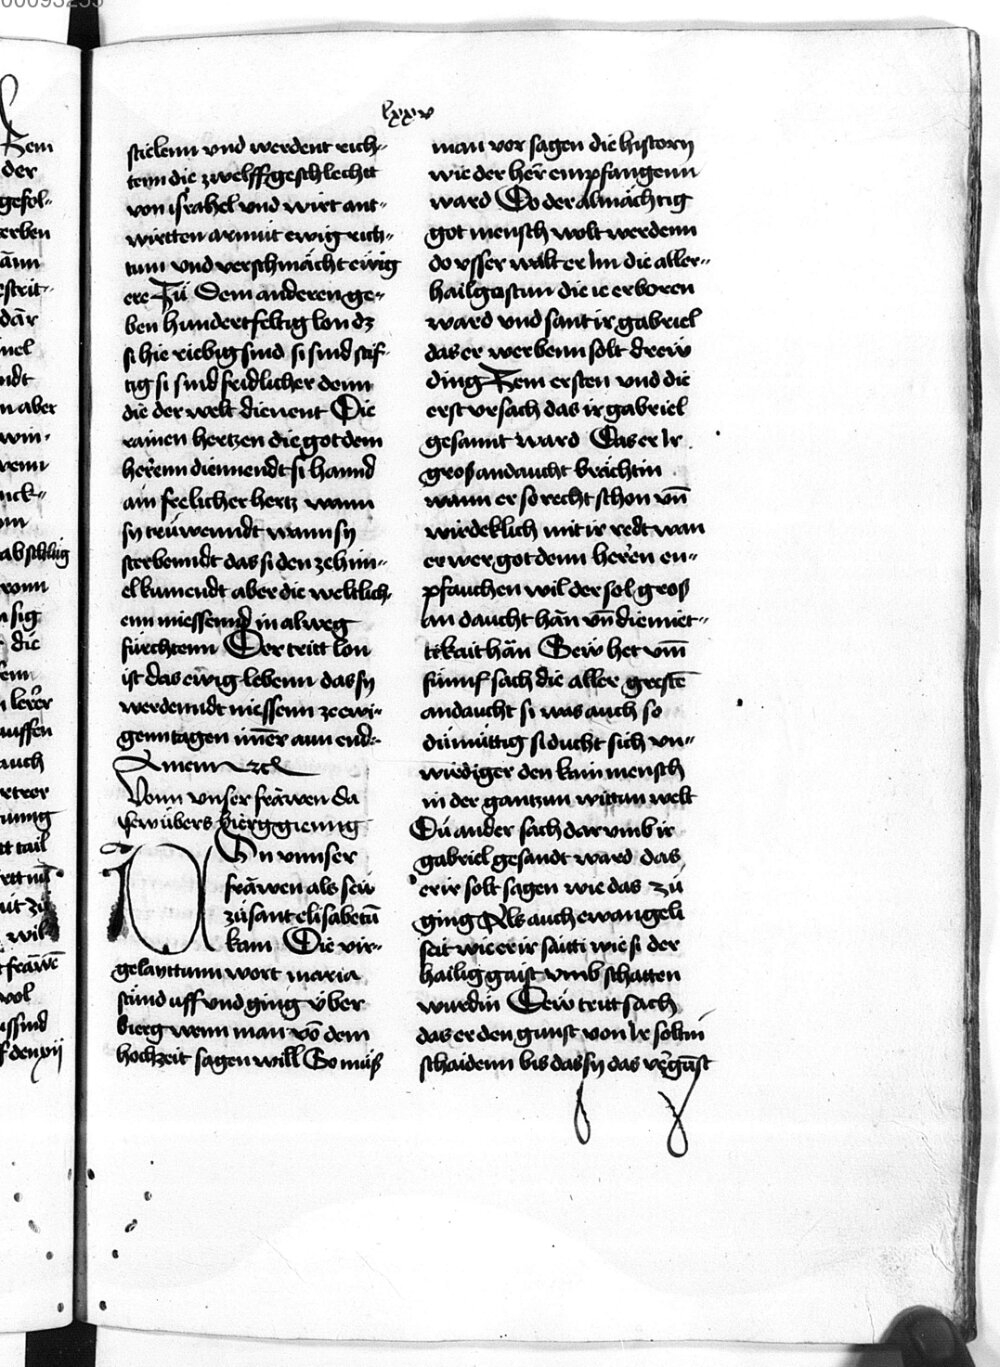 00093255
lxxv
stielenn vnd werdent rich-
tenn die zwelff geschlecht
von israhel vnd wirt ant-
wirtten armůt ewig rich-
tum vnd verschmächt ewig
ere Zů Dem anderen ge-
ben hundertfeltig lon dz
si hie riebig sind si sind stif-
tig si sind fridlicher denn
die der welt dienent Die
rainen hertzen die got dem
herenn diennendt si hannd
ain feelicher hertz wann
sy trüwenndt wann sy
sterbenndt das si den ze him-
el kumendt aber die weltlich-
enn miessennd in alweg
fürchtenn Der tritt lon
ist das ewig lebenn das sy
werdenndt niessenn ze ewi-
genn tagen imer aun end-
Amen etc
Vonn vnser fräwen da
sew übers bierg gienng
Un vnnser
fräwen als sew
zů sant elisabetñ
kam Die vir-
gelayttunn wort maria
stůnd uff vnd ging v̈ber
bierg wenn man võ dem
hochzeit sagen will So můß
man vor sagen die history
wie der her empfangenn
ward Do der almächtig
got mensch wolt werdenn
do vsser walt er im die aller-
hailgostun die ie erboren
ward vnd sant ir gabriel
das er werbenn solt drew
ding Zem ersten vnd die
erst vrsach das ir gabriel
gesannt ward Das er ir
groß andaucht brächtin
wann er so recht schon vñ
wirdeklich mit ir redt wan
er wer got denn heren en-
pfauchen wil der sol groß
an daucht hän vñ diemiet-
tikait hän Sew het vm̃
fünf sach die aller grestẽ
andaucht si was auch so
dümüttig si ducht sich vn-
wirdiger den kain mensch
in der gantzun wittun welt
Dü ander sach dar vmb ir
gabriel gesandt ward das
er ir solt sagen wie das zů
ging Als auch ewangeli
seit wie er ir saitti wie si der
hailig gaist vmb schatten
wurdin Dew tritt sach
das er den gunst von ir soltin
schaidenn bis das sy das vergäst